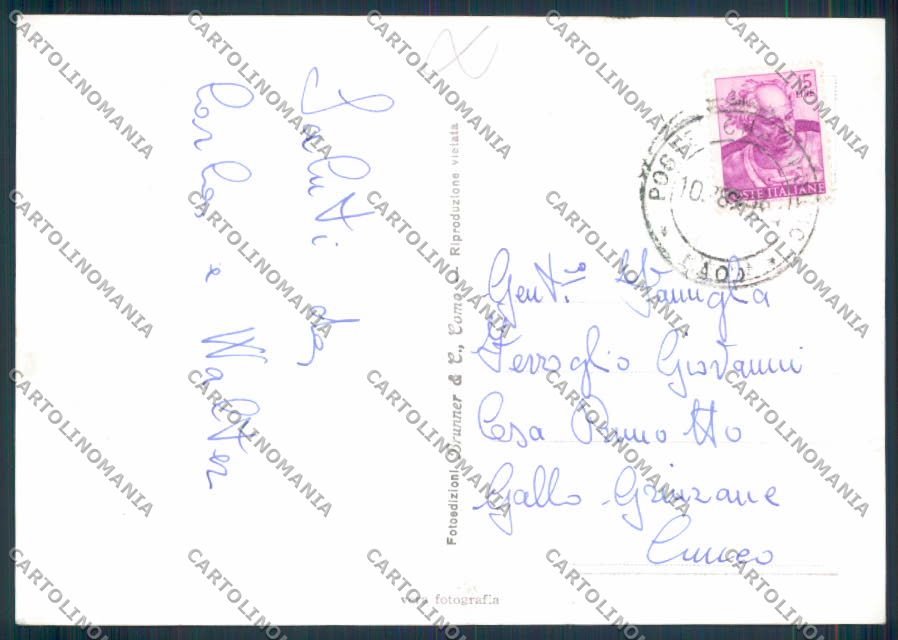 Saluti da
Carlo e Walter
Fotoedizioni Brunner & C., Como - Riproduzione vietata
15
POSTE ITALIANE
POSTA
10.
Gent.
Famiglia
Ferroglio Giovanni
Casa Prunotto
Gallo - Grinzane
Cuneo
vera fotografia
CARTOLINOMANIA